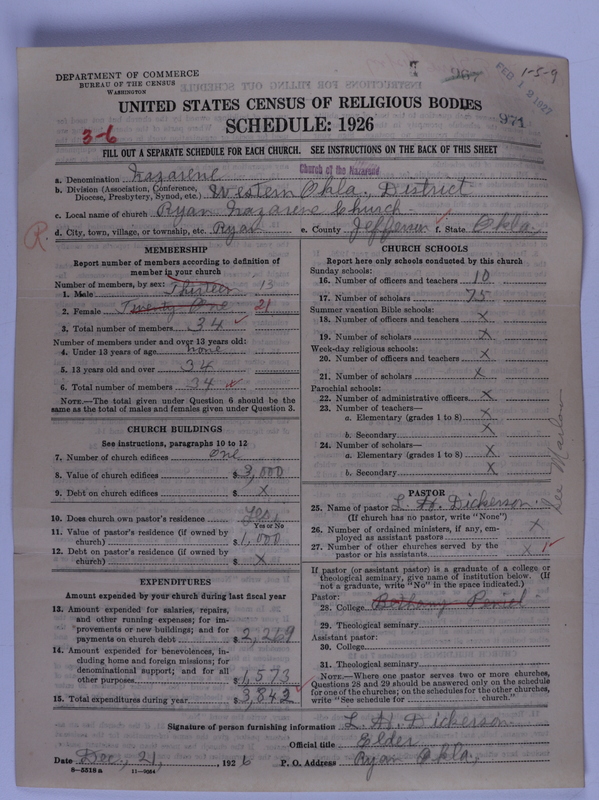 DEPARTMENT OF COMMERCE
BUREAU OF THE CENSUS
WASHINGTON
FEB 12 1927
1-5-9
UNITED STATES CENSUS OF RELIGIOUS BODIES
SCHEDULE: 1926
971
3-6
FILL OUT A SEPARATE SCHEDULE FOR EACH CHURCH. SEE INSTRUCTIONS ON THE BACK OF THIS SHEET
Church of the Nazarene
a. Denomination Nazarene
b. Division (Association, Conference, Diocese, Presbytery, Synod, etc.) Western Okla. District
c. Local name of church Ryan Nazarene Church
d. City, town, village, or township, etc. Ryan e. County Jefferson f. State Okla.
R.
MEMBERSHIP
Report number of members according to definition of
member in your church
Number of members, by sex:
1. Male Thirteen 13
2. Female Twenty One 21
3. Total number of members 34
Number of members under and over 13 years old:
4. Under 13 years of age none
5. 13 years old and over 34
6. Total number of members 34
NOTE.—The total given under Question 6 should be the
same as the total of males and females given under Question 3.
CHURCH BUILDINGS
See instructions, paragraphs 10 to 12
7. Number of church edifices one
8. Value of church edifices $3,000
9. Debt on church edifices $ X
10. Does church own pastor's residence Yes,
Yes or No
11. Value of pastor's residence (if owned by
church) $1,000
12. Debt on pastor's residence (if owned by
church) $ X
EXPENDITURES
Amount expended by your church during last fiscal year
13. Amount expended for salaries, repairs,
and other running expenses; for im-
provements or new buildings; and for
payments on church debt $2,269
14. Amount expended for benevolences, in-
cluding home and foreign missions; for
denominational support; and for all
other purposes $1,573
15. Total expenditures during year $3,842
CHURCH SCHOOLS
Report here only schools conducted by this church
Sunday schools:
16. Number of officers and teachers 10
17. Number of scholars 75
Summer vacation Bible schools:
18. Number of officers and teachers X
19. Number of scholars X
Week-day religious schools:
20. Number of officers and teachers X
21. Number of scholars X
Parochial schools:
22. Number of administrative officers X
23. Number of teachers—
a. Elementary (grades 1 to 8) X
b. Secondary X
24. Number of scholars—
a. Elementary (grades 1 to 8) X
b. Secondary X
See Marlow
PASTOR
25. Name of pastor L. H. Dickerson
(If church has no pastor, write "None")
26. Number of ordained ministers, if any, em-
ployed as assistant pastors X
27. Number of other churches served by the
pastor or his assistants X
If pastor (or assistant pastor) is a graduate of a college or
theological seminary, give name of institution below. (If
not a graduate, write "No" in the space indicated.)
Pastor:
28. College Bethany Peniel
29. Theological seminary
Assistant pastor:
30. College
31. Theological seminary
NOTE.—Where one pastor serves two or more churches,
Questions 28 and 29 should be answered only on the schedule
for one of the churches; on the schedules for the other churches,
write "See schedule for church."
Signature of person furnishing information L. H. Dickerson
Official title Elder
Date Dec, 21, , 1926 P. O. Address Ryan Okla,
8—5518 a 11—9054